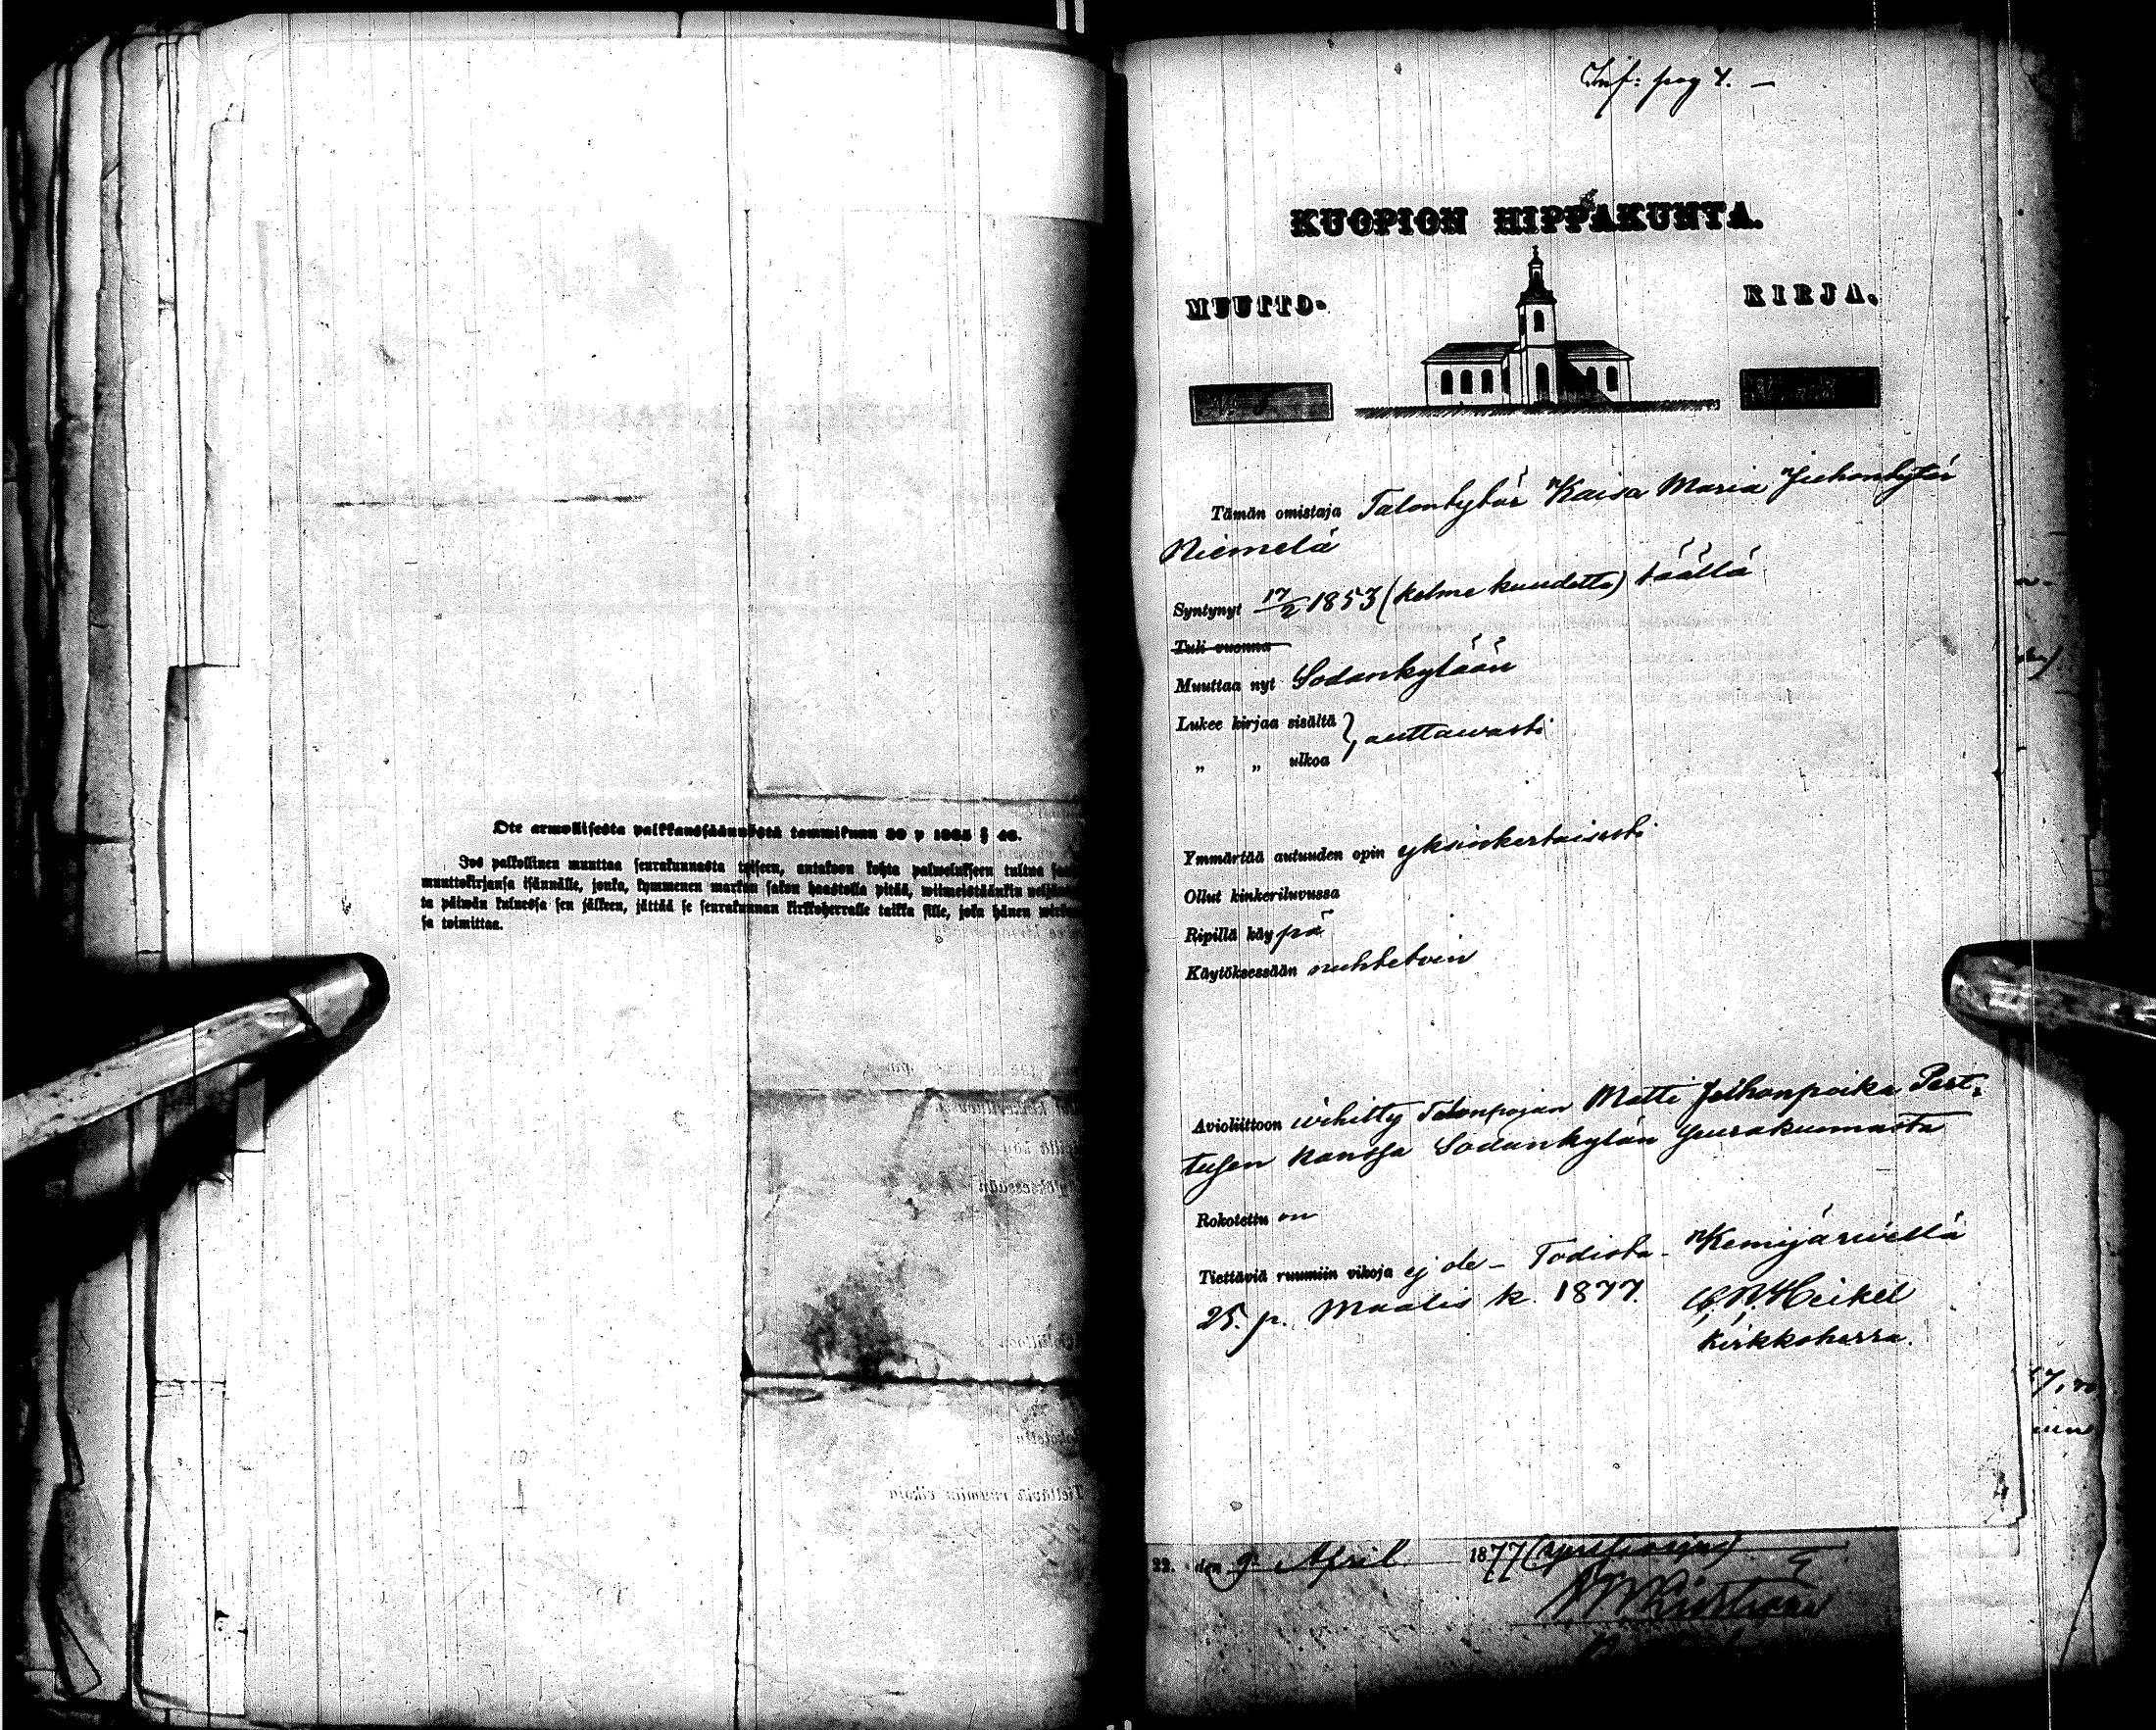 Ote armollisesta palkkaussäännöstä tammikuun 30 p 1865 § 48.
Jos palkollinen muuttaa seurakunnasta toiseen, antakoon kohta palwelukseen tultua
muuttokirjansa isännälle, jonka, kymmenen markan sakon haastolla pitää, wiimeistäänkin
ta päiwän kuluessa sen jälkeen, jättää se seurakunnan kirkkoherralle taikka sille, joka hänen
sa toimittaa.
Inf: pag 7. —
KUOPION HIPPAKUNTA.
MUUTTO- KIRJA.
Tämän omistaja Talontytär Kaisa Maria
Niemelä
Syntynyt 17/2 1853 (kolme kuudetta) täällä
Tuli vuonna
Muuttaa nyt Sodankylään
Lukee kirjaa sisältä } auttawasti
„ „ ulkoa
Ymmärtää autuuden opin yksinkertaisesti
Ollut kinkeriluvussa
Ripillä käypä
Käytöksessään nuhtetoin
Avioliittoon wihitty Talonpojan Matti Juhonpoika Pert-
tusen kanssa Sodankylän seurakunnasta
Rokotettu on
Tiettäviä ruumiin vikoja ej ole – Todista – Kemijärwellä
25. p. Maalis k. 1877. Heikel
Kirkkoherra.
22. den 9 April 1877